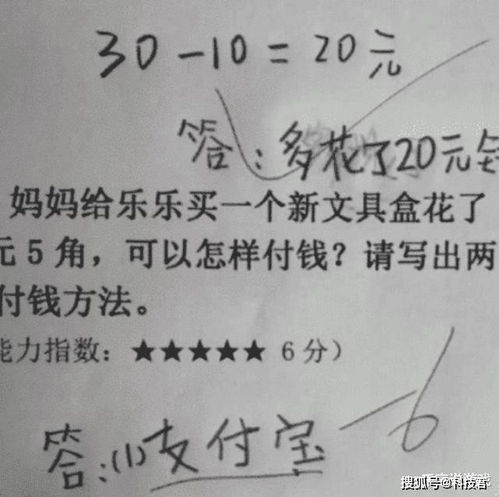 30-10=20元
答：多花了20元
妈妈给乐乐买一个新文具盒花了
元5角，可以怎样付钱？请写出两
付钱方法。
能力指数：★★★★★ 6分）
-6
答：(1)支付宝
搜狐号@科技春